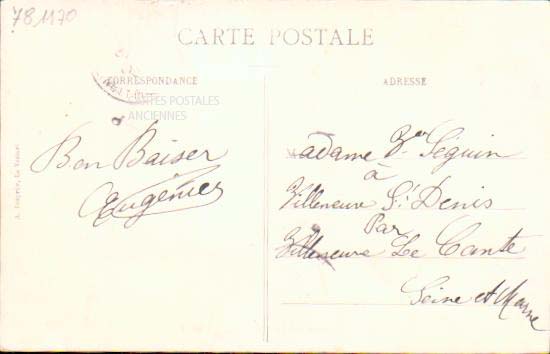 781170
CARTE POSTALE
CORRESPONDANCE
ADRESSE
CARTES POSTALES
ANCIENNES
Bon Baiser
Eugénie
Madame Vve Séguin
à
Villeneuve St Denis
Par
Villeneuve Le Comte
Seine et Marne